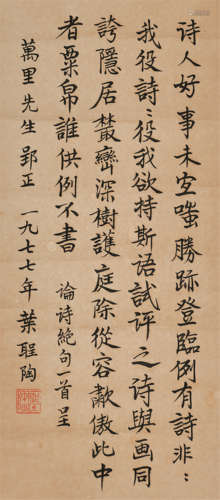 诗人好事未空嗤勝跡登臨例有诗非〻
我役詩〻役我欲持斯语試评之诗與画同
誇隱居叢巒深樹護庭除從容歗傲此中
者粟帛誰供例不書 論诗絶句一首呈
萬里先生郢正 一九七七年 葉聖陶